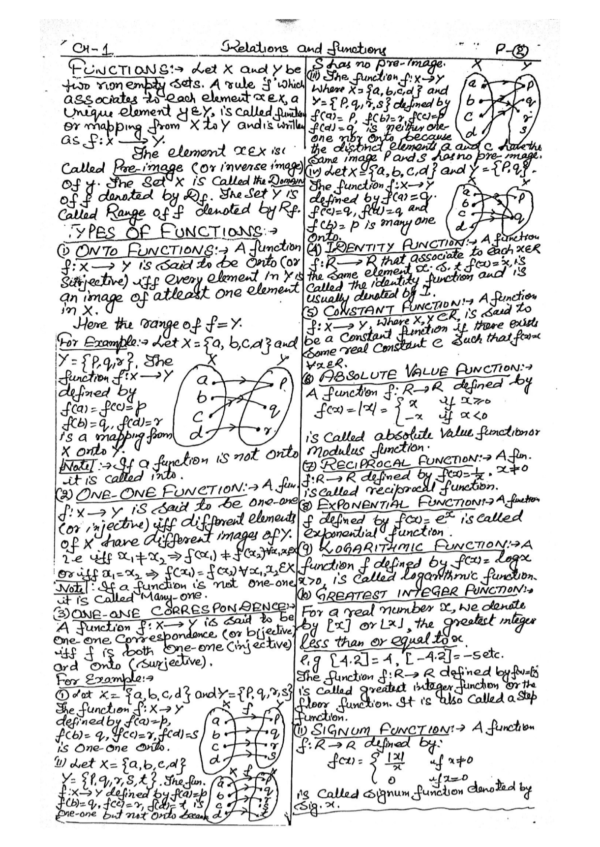 CH-1 Relations and functions P-(2)
FUNCTIONS:→ Let X and Y be
two non empty sets. A rule f which
associates to each element x∈X, a
Unique element y∈Y, is called function
or mapping from X to Y and is written
as f: X → Y.
The element x∈X is
Called Pre-image (or inverse image)
of y. The Set X is Called the Domain
of f denoted by Df. The Set Y is
Called Range of f denoted by Rf.
TYPES OF FUNCTIONS:→
(1) ONTO FUNCTIONS:→ A function
f: X → Y is said to be Onto (or
Surjective) iff every element in Y is
an image of atleast one element
in X.
Here the range of f = Y.
For Example:→ Let X = {a, b, c, d} and
Y = {p, q, r}. The
function f: X → Y
defined by
f(a) = f(c) = p
f(b) = q, f(d) = r
is a mapping from
X onto Y.
X Y
a b c d
p q r
Note:→ If a function is not onto
it is called into.
(2) ONE-ONE FUNCTION:→ A fun.
f: X → Y is said to be one-one
(or injective) iff different elements
of X have different images of Y.
i.e iff x₁ ≠ x₂ ⇒ f(x₁) ≠ f(x₂) ∀ x₁, x₂∈X
or iff x₁ = x₂ ⇒ f(x₁) = f(x₂) ∀ x₁, x₂∈X
Note: If a function is not one-one,
it is called Many-one.
(3) ONE-ONE CORRESPONDENCE:→
A function f: X → Y is said to be
One-one Correspondence (or bijective)
iff f is both one-one (injective)
and Onto (surjective).
For Example:→
(i) Let X = {a, b, c, d} and Y = {p, q, r, s}
The function f: X → Y
defined by f(a) = p,
f(b) = q, f(c) = r, f(d) = s
is One-one Onto.
X f Y
a b c d
p q r s
ii) Let X = {a, b, c, d}
Y = {p, q, r, s, t}. The fun.
f: X → Y defined by f(a) = p
f(b) = q, f(c) = r, f(d) = t, is
One-one but not Onto because
X f Y
a b c d
p q r s t
S has no pre-image.
(iii) The function f: X → Y
where X = {a, b, c, d} and
Y = {p, q, r, s} defined by
f(a) = p, f(b) = r, f(c) = p
f(d) = q is neither one-
one nor onto because
the distinct elements a and c have the
same image p and s has no pre-image.
X Y
a b c d
p q r s
(iv) Let X = {a, b, c, d} and Y = {p, q}.
The function f: X → Y
defined by f(a) = q
f(c) = q, f(d) = q and
f(b) = p is many one
Onto.
X Y
a b c d
p q
(4) IDENTITY FUNCTION:→ A function
f: R → R that associate to each x∈R
the same element x. s.t f(x) = x, is
Called the identity function and is
usually denoted by I.
(5) CONSTANT FUNCTION:→ A function
f: X → Y, where X, Y⊂R, is said to
be a Constant function if there exists
Some real Constant c such that f(x)=c
∀ x∈R.
(6) ABSOLUTE VALUE FUNCTION:→
A function f: R → R defined by
f(x) = |x| = { x if x ≥ 0
-x if x < 0
is Called absolute value function or
Modulus function.
(7) RECIPROCAL FUNCTION:→ A fun.
f: R → R defined by f(x) = 1/x, x ≠ 0
is called reciprocal function.
(8) EXPONENTIAL FUNCTION:→ A function
f defined by f(x) = eˣ is called
exponential function.
(9) LOGARITHMIC FUNCTION:→ A
function f defined by f(x) = log x
x>0, is Called logarithmic function.
(10) GREATEST INTEGER FUNCTION:→
For a real number x, we denote
by [x] or ⌊x⌋, the greatest integer
less than or equal to x.
e.g [4.2] = 4, [-4.2] = -5 etc.
The function f: R → R defined by f(x)=[x]
is called greatest integer function or the
floor function. It is also Called a Step
function.
(11) SIGNUM FUNCTION:→ A function
f: R → R defined by:
f(x) = { |x|/x if x ≠ 0
0 if x = 0
is Called signum function denoted by
sig. x.